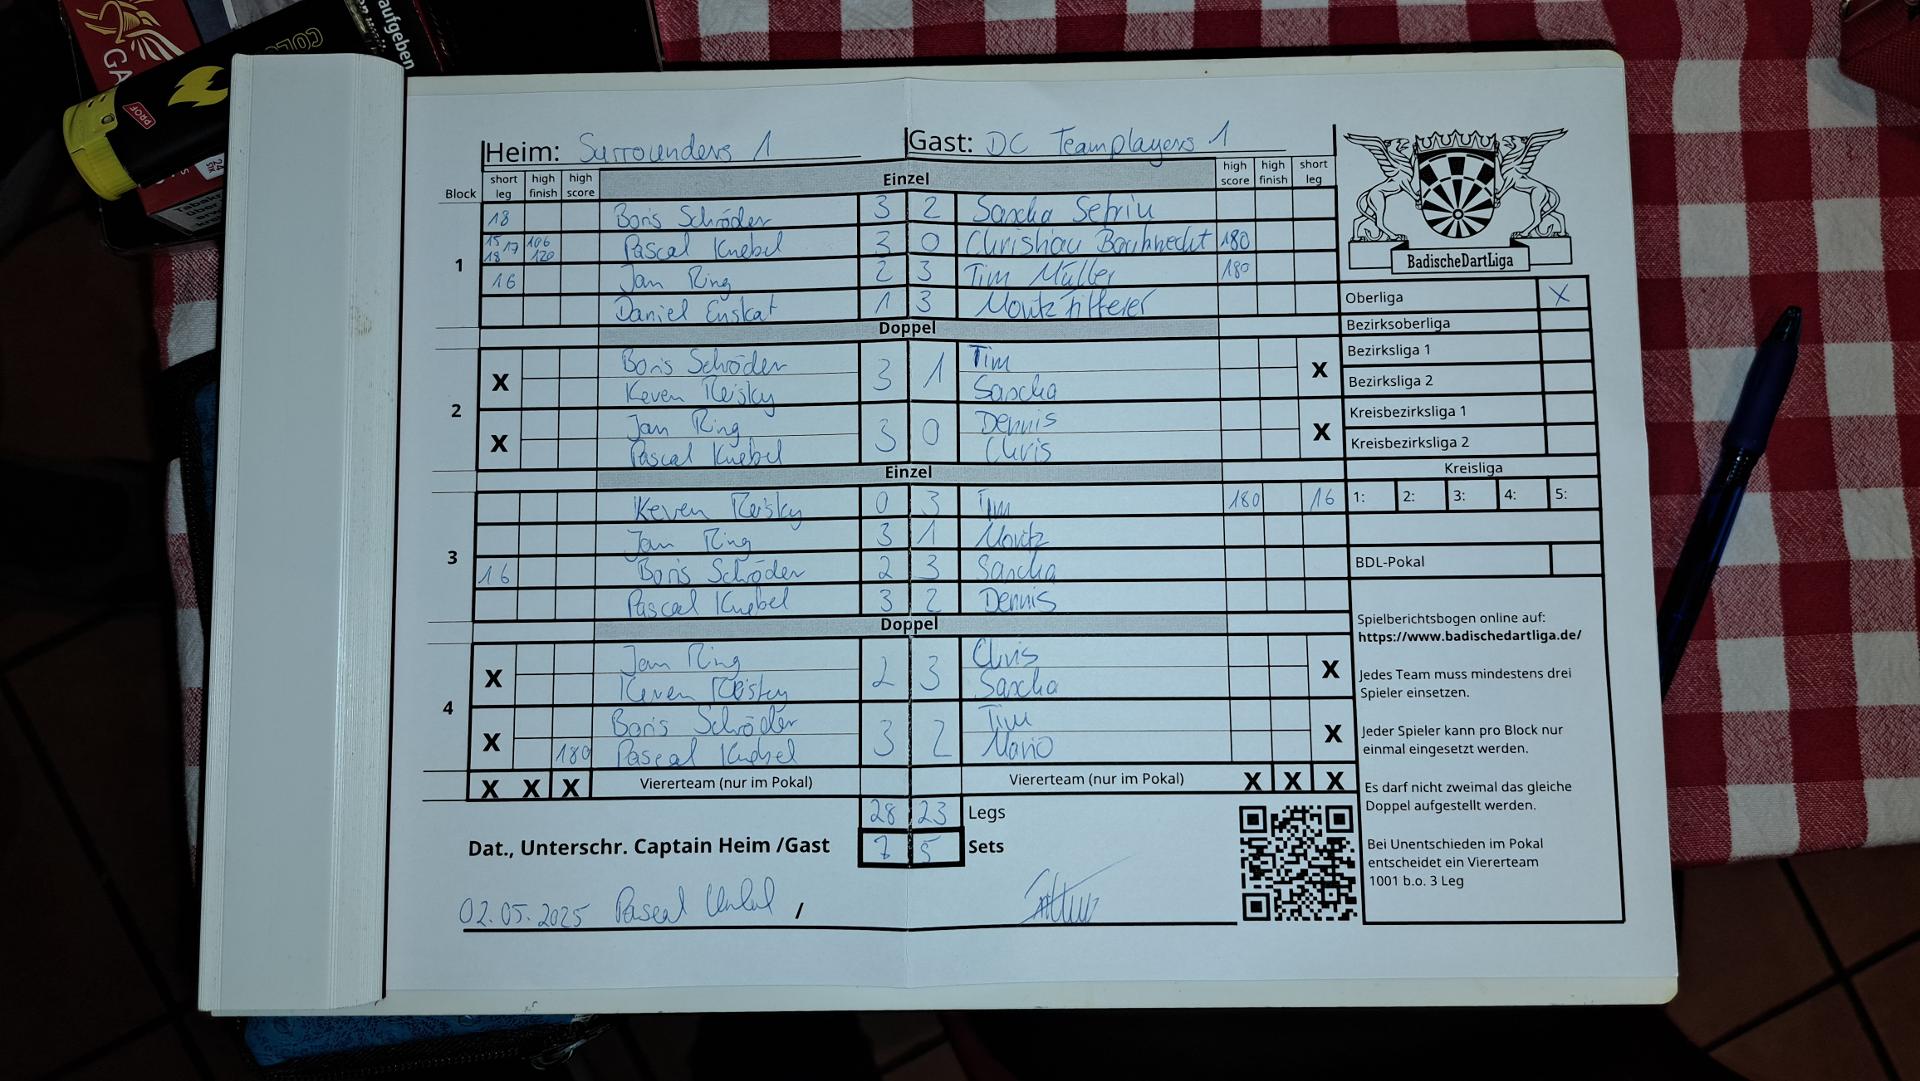 aufgeben
GA
PROF
Heim: Surrounders 1 Gast: DC Teamplayers 1
Block short leg high finish high score Einzel high score high finish short leg
1
18 Boris Schröder 3 2 Sascha Sefrin
15 17 18 106 120 Pascal Knebel 3 0 Christian Bauknecht 180
16 Jan Ring 2 3 Tim Müller 180
Daniel Enskat 1 3 Moritz Fitterer
Doppel
2
X Boris Schröder 3 1 Tim X
Keven Reisky Sascha
X Jan Ring 3 0 Dennis X
Pascal Knebel Chris
Einzel
3
Keven Reisky 0 3 Tim 180 16
Jan Ring 3 1 Moritz
16 Boris Schröder 2 3 Sascha
Pascal Knebel 3 2 Dennis
Doppel
4
X Jan Ring 2 3 Chris X
Keven Reisky Sascha
X Boris Schröder 3 2 Tim X
180 Pascal Knebel Mario
X X X Viererteam (nur im Pokal) Viererteam (nur im Pokal) X X X
28 23 Legs
Dat., Unterschr. Captain Heim /Gast 7 5 Sets
02.05.2025 Pascal Knebel /
BadischeDartLiga
Oberliga X
Bezirksoberliga
Bezirksliga 1
Bezirksliga 2
Kreisbezirksliga 1
Kreisbezirksliga 2
Kreisliga
1: 2: 3: 4: 5:
BDL-Pokal
Spielberichtsbogen online auf:
https://www.badischedartliga.de/
Jedes Team muss mindestens drei
Spieler einsetzen.
Jeder Spieler kann pro Block nur
einmal eingesetzt werden.
Es darf nicht zweimal das gleiche
Doppel aufgestellt werden.
Bei Unentschieden im Pokal
entscheidet ein Viererteam
1001 b.o. 3 Leg